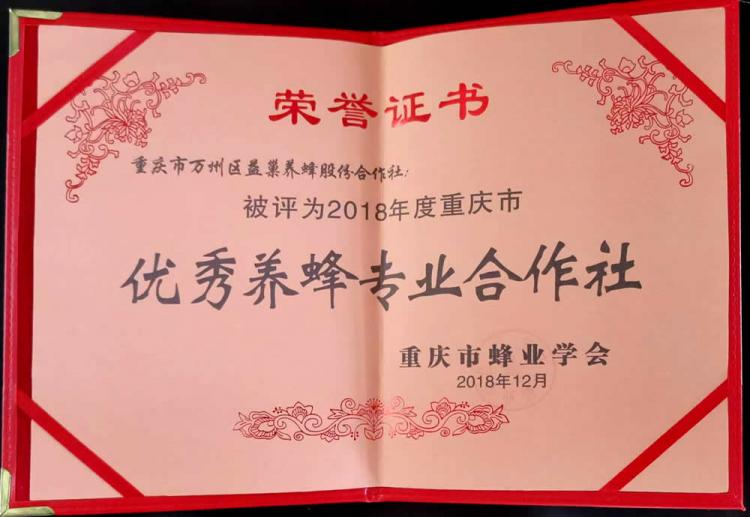 荣誉证书
重庆市万州区益巢养蜂股份合作社:
被评为2018年度重庆市
优秀养蜂专业合作社
重庆市蜂业学会
2018年12月